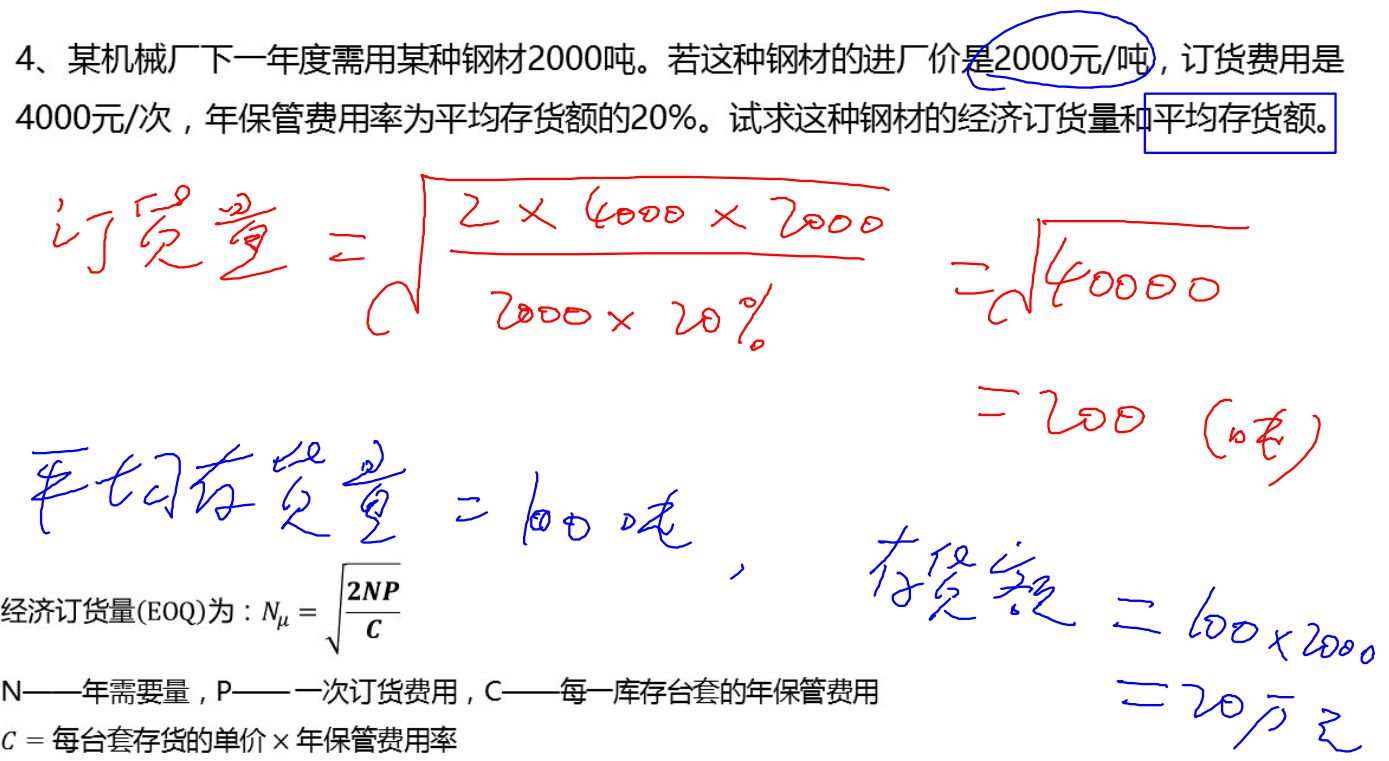 4、某机械厂下一年度需用某种钢材2000吨。若这种钢材的进厂价是2000元/吨，订货费用是
4000元/次，年保管费用率为平均存货额的20%。试求这种钢材的经济订货量和平均存货额。
订货量 = √(2 × 4000 × 2000 / 2000 × 20%) = √40000
= 200 (吨)
平均存货量 = 100吨，
存货额 = 100 × 2000
= 20万元
经济订货量(EOQ)为：Nμ = √(2NP/C)
N——年需要量，P—— 一次订货费用，C——每一库存台套的年保管费用
C = 每台套存货的单价 × 年保管费用率